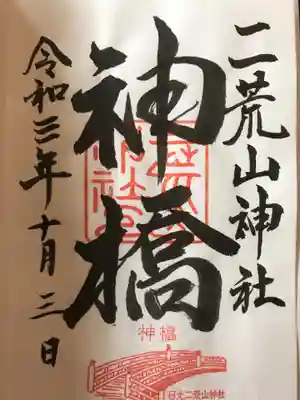 二荒山神社
神橋
令和三年十月三日
神橋
日光二荒山神社